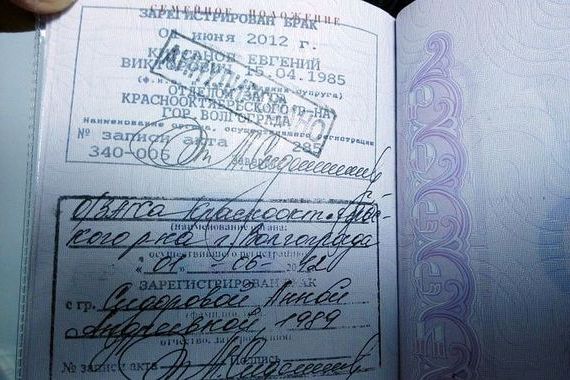 СЕМЕЙНОЕ ПОЛОЖЕНИЕ
ЗАРЕГИСТРИРОВАН БРАК
01 ИЮНЯ 2012 Г.
ЕВГЕНИЙ
15.04.1985
ОТДЕЛОМ ЗАГСА
КРАСНООКТЯБРЬСКОГО Р-НА
ГОР. ВОЛГОГРАДА
наименование органа, осуществившего регистрацию
№ записи акта 285
340-006
О/ЗАГСа Краснооктябрьс-
кого р-на г. Волгограда
(наименование органа,
осуществившего регистрацию)
"01" 06 2012
ЗАРЕГИСТРИРОВАН БРАК
с гр. Сидоровой Анной
Андреевной, 1989
№ записи акта Подпись